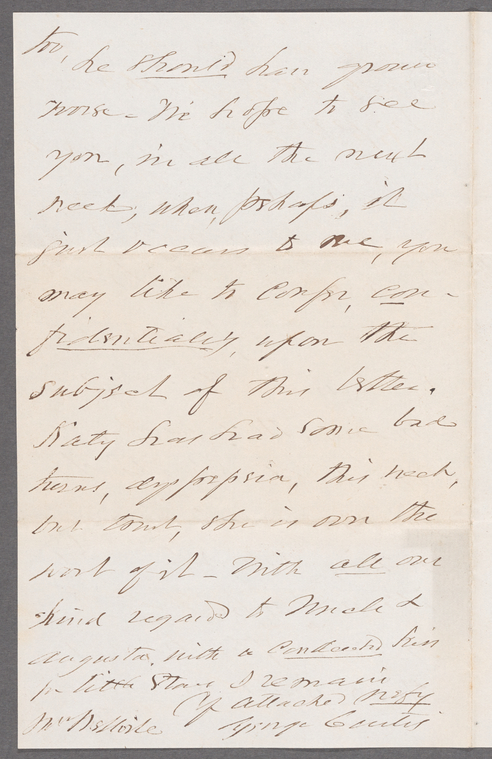 too,
he should have grown
worse – We hope to see
you, in all the next
week, when, perhaps, it
just occurs to me, you
may like to confer, con-
fidentially, upon the
subject of this letter.
Katy has had some bad
turns, dyspepsia, this week,
but trust, she is over the
worst of it – With all our
kind regards to Uncle &
Augusta, with a kiss
for little I remain
Yr attached
George Curtis